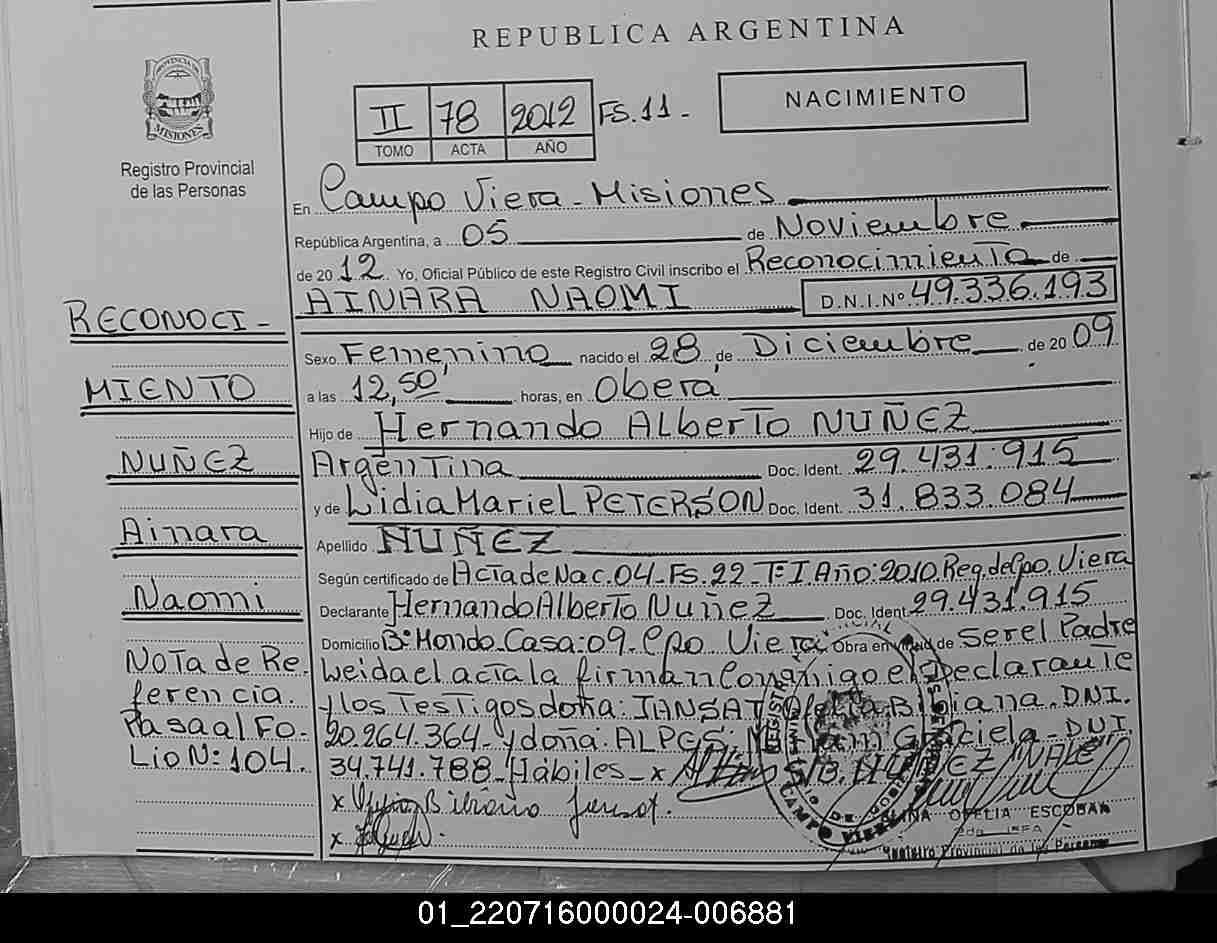 REPUBLICA ARGENTINA
PROVINCIA DE
MISIONES
Registro Provincial
de las Personas
II 78 2012 Fs. 11.-
TOMO ACTA AÑO
NACIMIENTO
En Campo Viera - Misiones
República Argentina, a 05 de Noviembre
de 2012 Yo, Oficial Público de este Registro Civil inscribo el Reconocimiento de
AINARA NAOMI D.N.I.Nº 49.336.193
Sexo Femenino nacido el 28 de Diciembre de 2009
a las 12,50' horas, en Oberá
Hijo de Hernando Alberto NUÑEZ
Argentina Doc. Ident. 29.431.915
y de Lidia Mariel PETERSON Doc. Ident. 31.833.084
Apellido NUÑEZ
Según certificado de Acta de Nac. 04-Fs.22-Tº I. Año: 2010. Reg. del Cpo. Viera
Declarante Hernando Alberto Nuñez Doc. Ident. 29.431.915
Domicilio Bº Mondo-Casa: 09. Cpo Viera Obra en de ser el Padre
Leida el acta la firman Conmigo el Declarante
y los Testigos doña: JANSAT Ofelia Bibiana. DNI.
20.264.364- y doña: ALPES: Miriam Graciela - DNI
34.741.788-Hábiles- x
x
x
OFELIA ESCOBAR
Registro Provincial de las Personas
CAMPO VIERA
RECONOCI-
MIENTO
NUÑEZ
Ainara
Naomi
Nota de Re-
ferencia.
Pasa al Fo-
Lio Nº: 104.
01_220716000024-006881